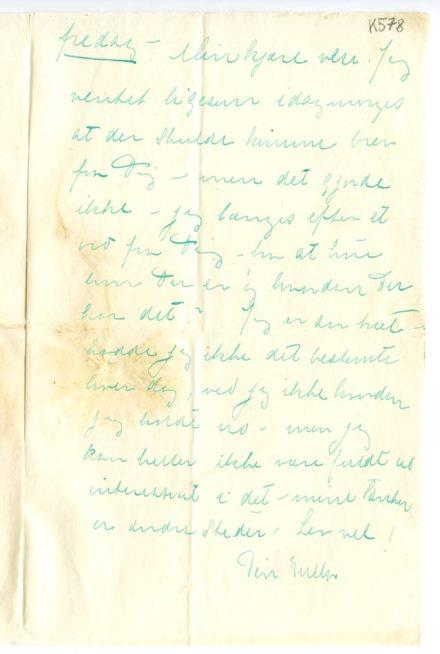 K578
fredag – Min kjære ven. Jeg
ventet ligesom idagmorges
at der skulde komme brev
fra Dig – men det gjorde
ikke – jeg længes efter et
ord fra Dig – for at høre
hvor Du er og hvordan Du
har det? Jeg er den
hadde jeg ikke det bestemte
hver dag, ved jeg ikke hvordan
jeg holdt ud – men jeg
kan heller ikke være fuldt ud
interessert i det – mine Tanker
er andre Steder. Lev vel!
Din